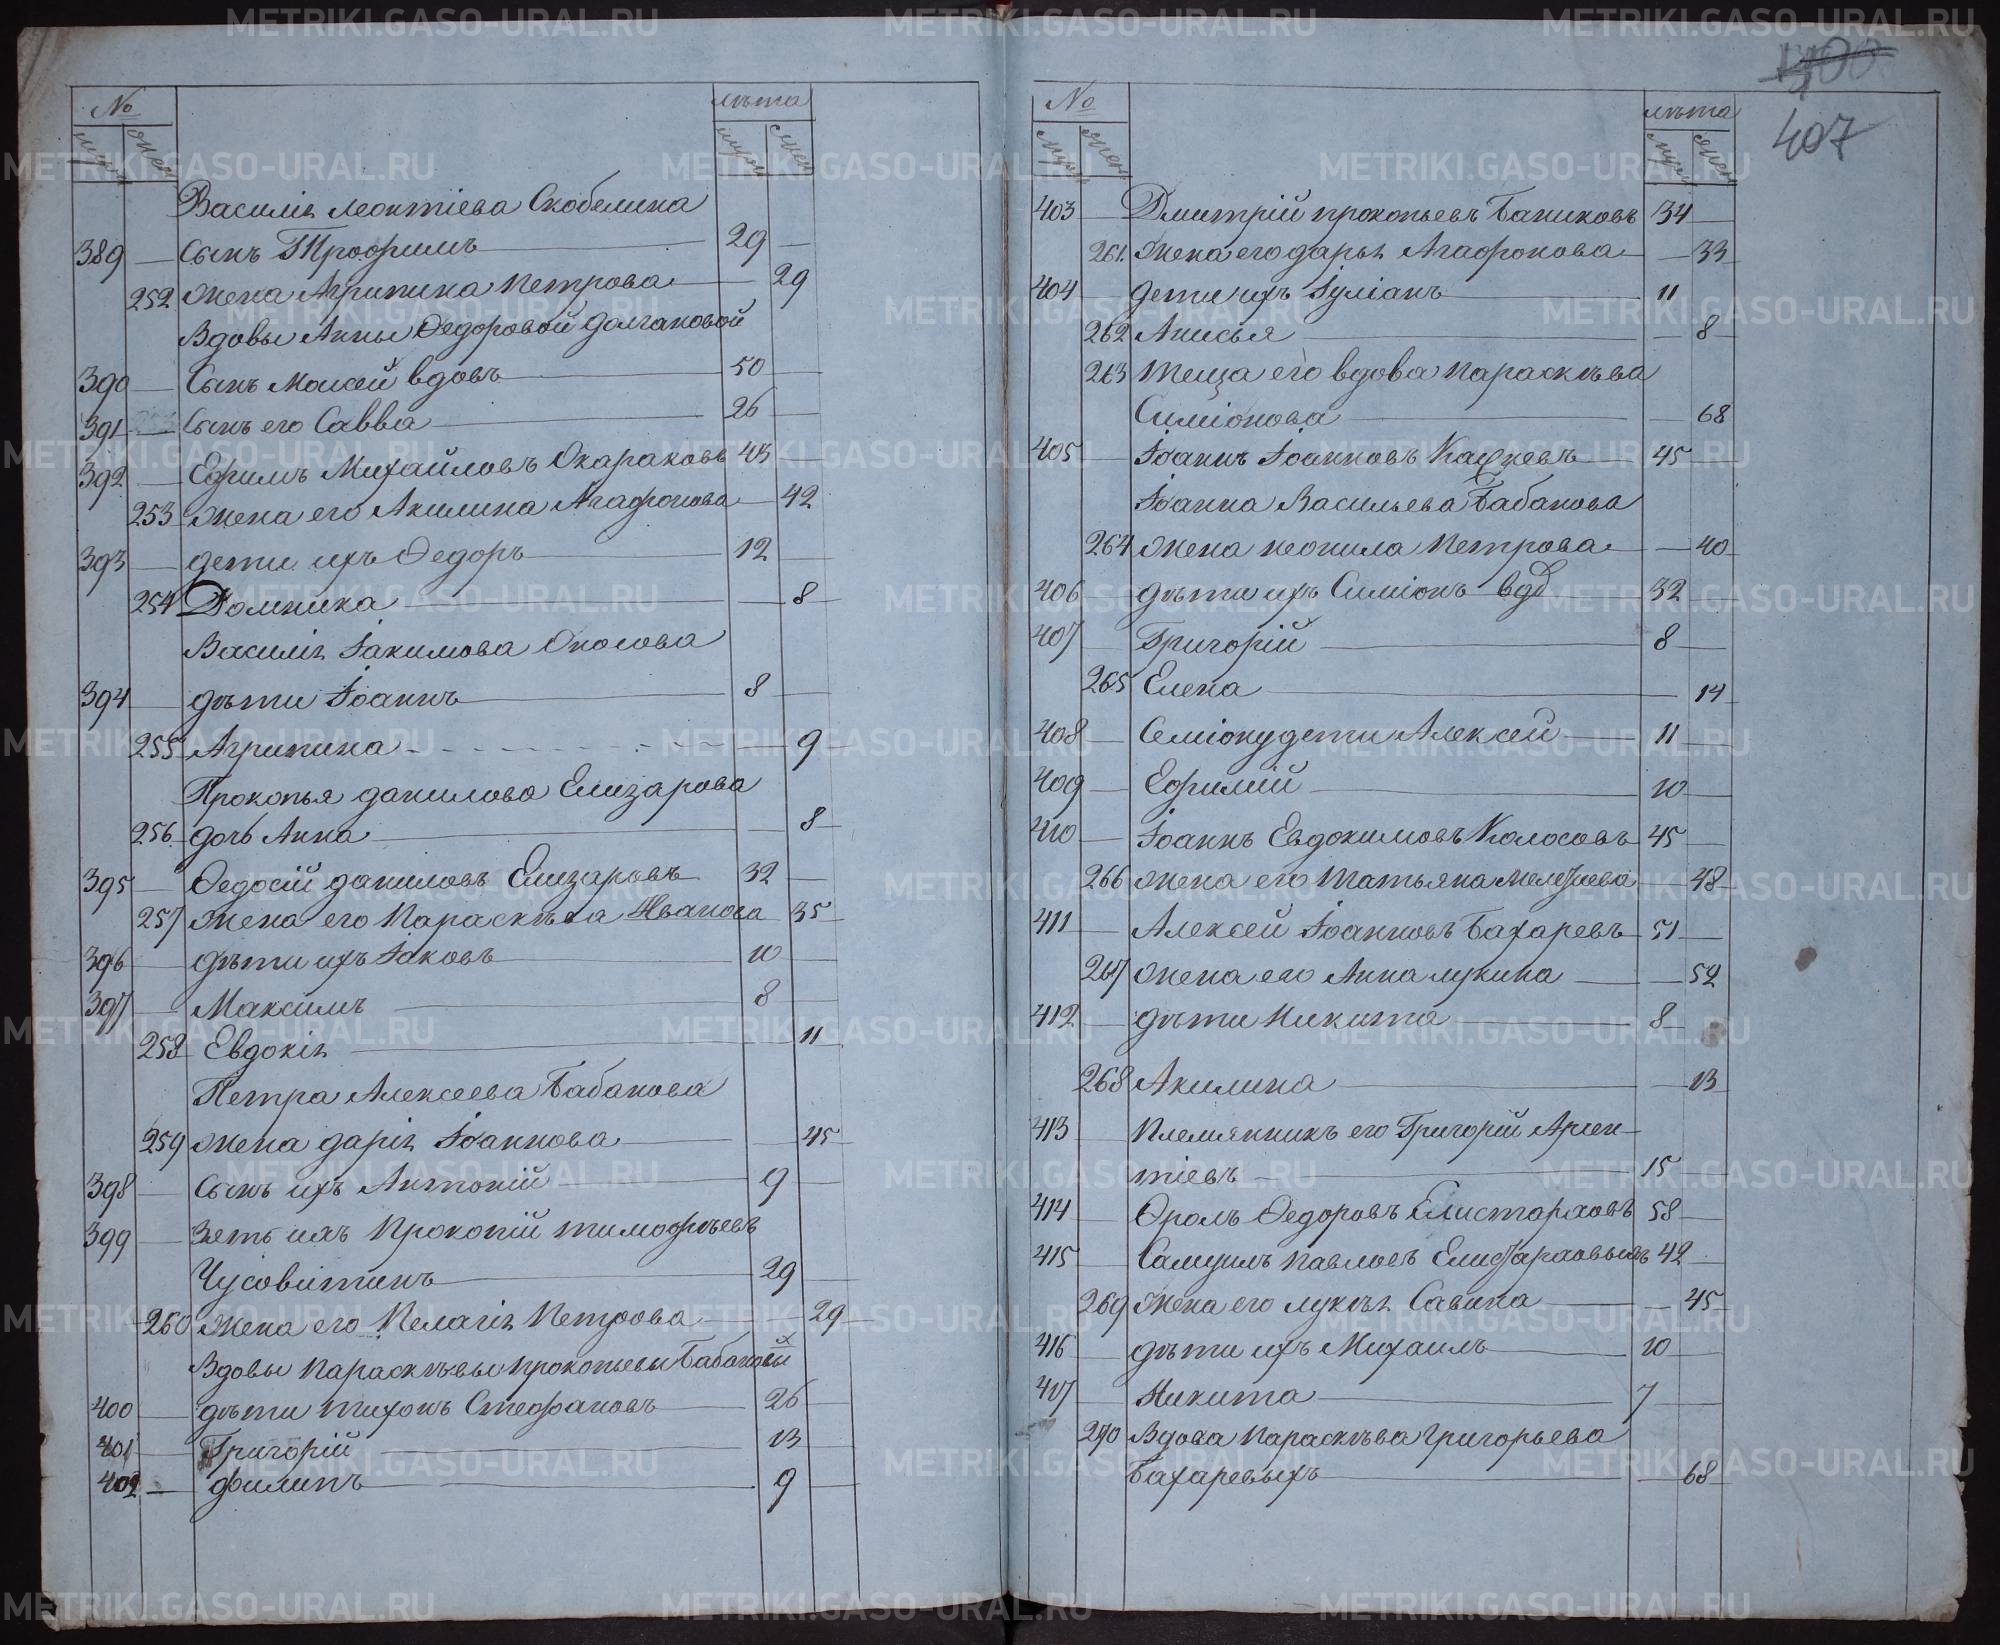 № лѣта
муж жен муж жен
Василія Леонтіева Скобелина
389 Сынъ Трофимъ 29
252 Жена Агрипина Петрова 29
Вдовы Анны Ѳедоровой Долгановой
390 Сынъ Моисей вдовъ 50
391 Сынъ его Савва 26
392 Ефимъ Михайловъ Окараковъ 43
253 Жена его Акилина Агафонова 42
393 дети ихъ Ѳедоръ 12
254 Домника 8
Василія Іакимова Оносова
394 дѣти Іоаннъ 8
255 Агрипина 9
Прокопья Данилова Елизарова
256 дочь Анна 8
395 Ѳедосій Даниловъ Елизаровъ 32
257 Жена его Параскѣва Иванова 35
396 дѣти ихъ Іаковъ 10
397 Максимъ 8
258 Евдокія 11
Петра Алексеева Бабанова
259 Жена Дарія Іоаннова 45
398 Сынъ ихъ Антоній 9
399 Зять ихъ Прокопій Тимофѣевъ
Чусовитинъ 29
260 Жена его Пелагія Петрова 29
Вдовы Параскѣвы Прокопьевы Бабановы
400 дѣти Тихонъ Стефановъ 26
401 Григорій 13
402 Филипъ 9
400
407
№ лѣта
муж жен муж жен
403 Дмитрій Прокопьевъ Баниковъ 34
261 Жена его Дарья Агафонова 33
404 дети ихъ Іуліанъ 11
262 Анисья 8
263 Теща его вдова Параскѣва
Симіонова 68
405 Іоаннъ Іоанновъ 45
Іоанна Васильева Бабанова
264 Жена Неонила Петрова 40
406 дѣти ихъ Симіонъ вдв 32
407 Григорій 8
265 Елена 14
408 Семіону дети Алексей 11
409 Ефимій 10
410 Іоаннъ Евдокимовъ Колосовъ 45
266 Жена его Татьяна 48
411 Алексей Іоанновъ Бахаревъ 51
267 Жена его Анна Лукина 52
412 дѣти Никита 8
268 Акилина 13
413 Племянникъ его Григорій Арсен-
тіевъ 15
414 Фролъ Ѳедоровъ Елистарховъ 58
415 Самуилъ Павловъ 42
269 Жена его Лукѣя Савина 45
416 дѣти ихъ Михаилъ 10
417 Никита 7
270 Вдова Параскѣва Григорьева
Бахаревыхъ 68
METRIKI.GASO-URAL.RU